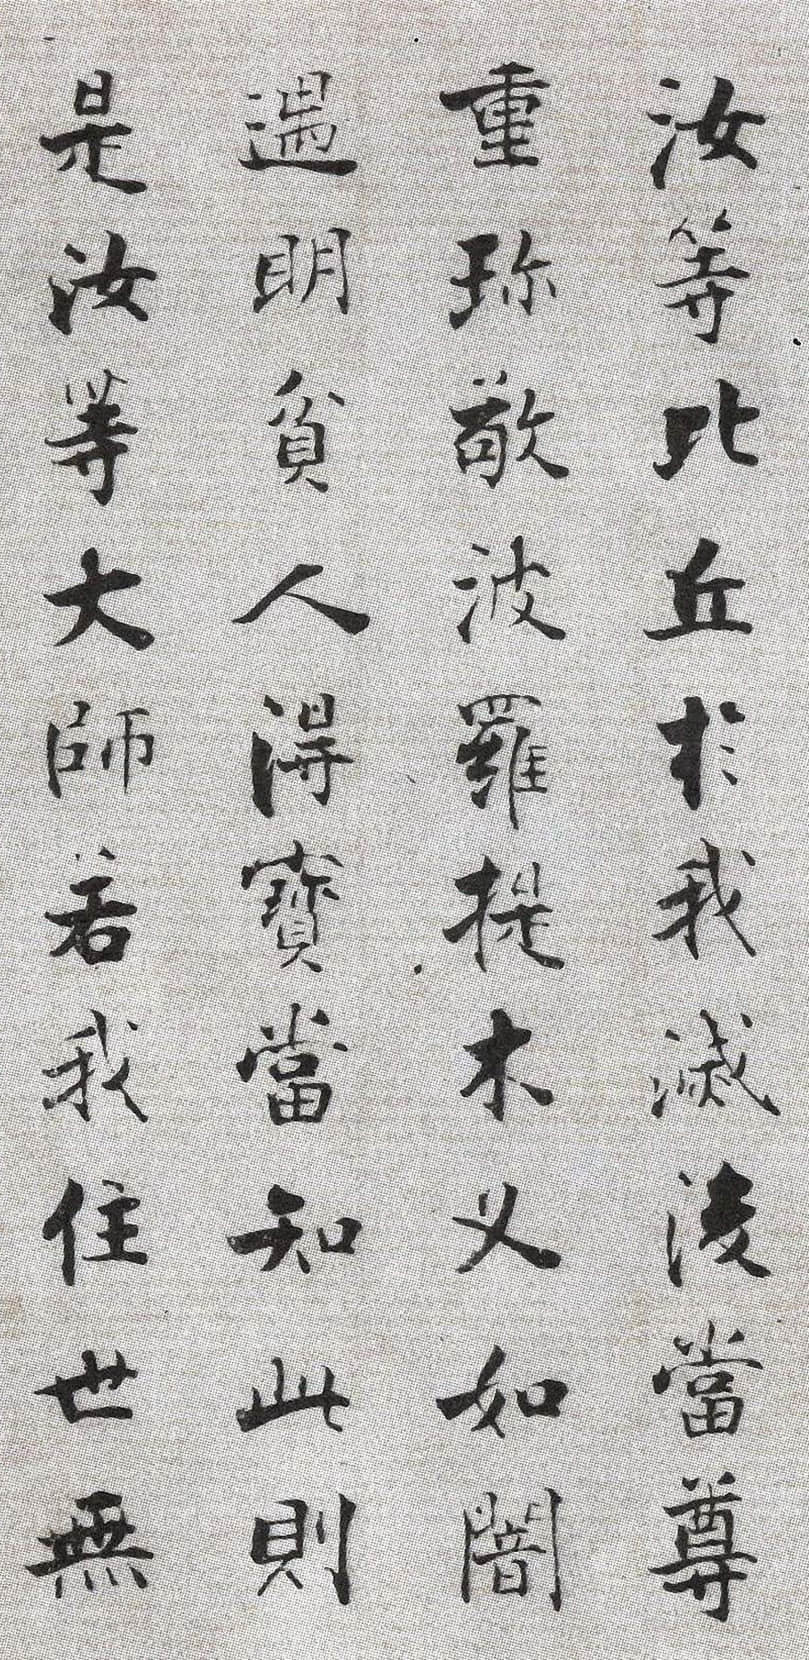 汝等比丘於我滅後當尊
重珎敬波羅提木义如闇
遇明貧人得寶當知此則
是汝等大師若我住世無